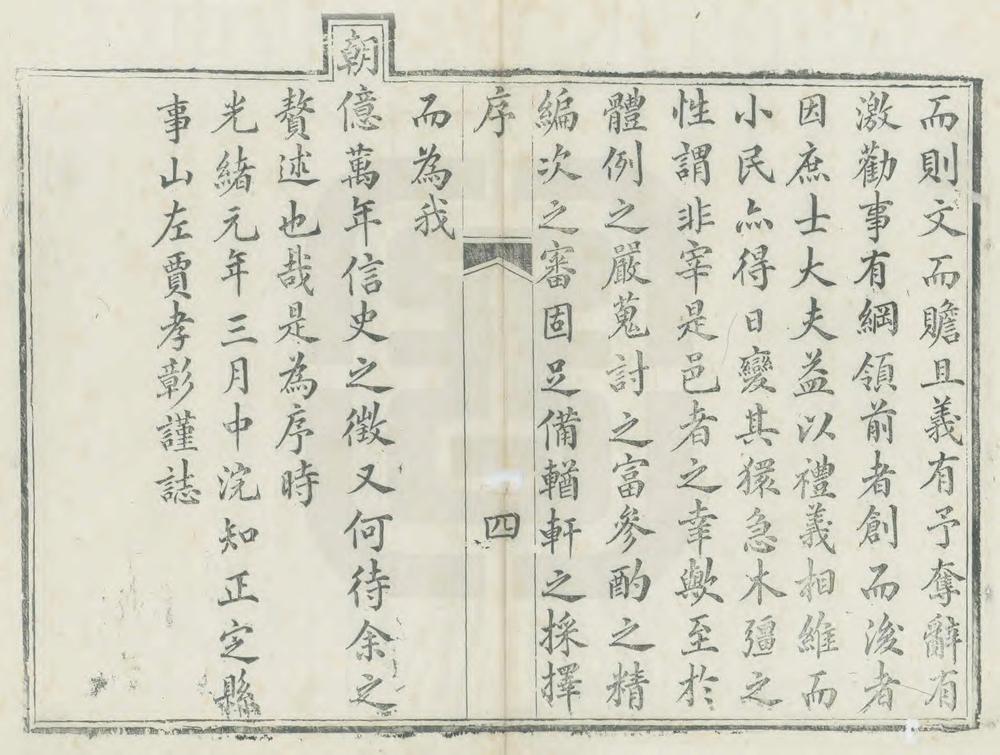 而則文而贍且義有予奪辭有
激勸事有綱領前者創而後者
因庶士大夫益以禮義相維而
小民亦得日變其獧急木彊之
性謂非宰是邑者之幸歟至於
體例之嚴蒐討之富參酌之精
編次之審固足備輶軒之採擇
序
四
而為我
朝億萬年信史之徵又何待余之
贅述也哉是為序時
光緒元年三月中浣知正定縣
事山左賈孝彰謹誌